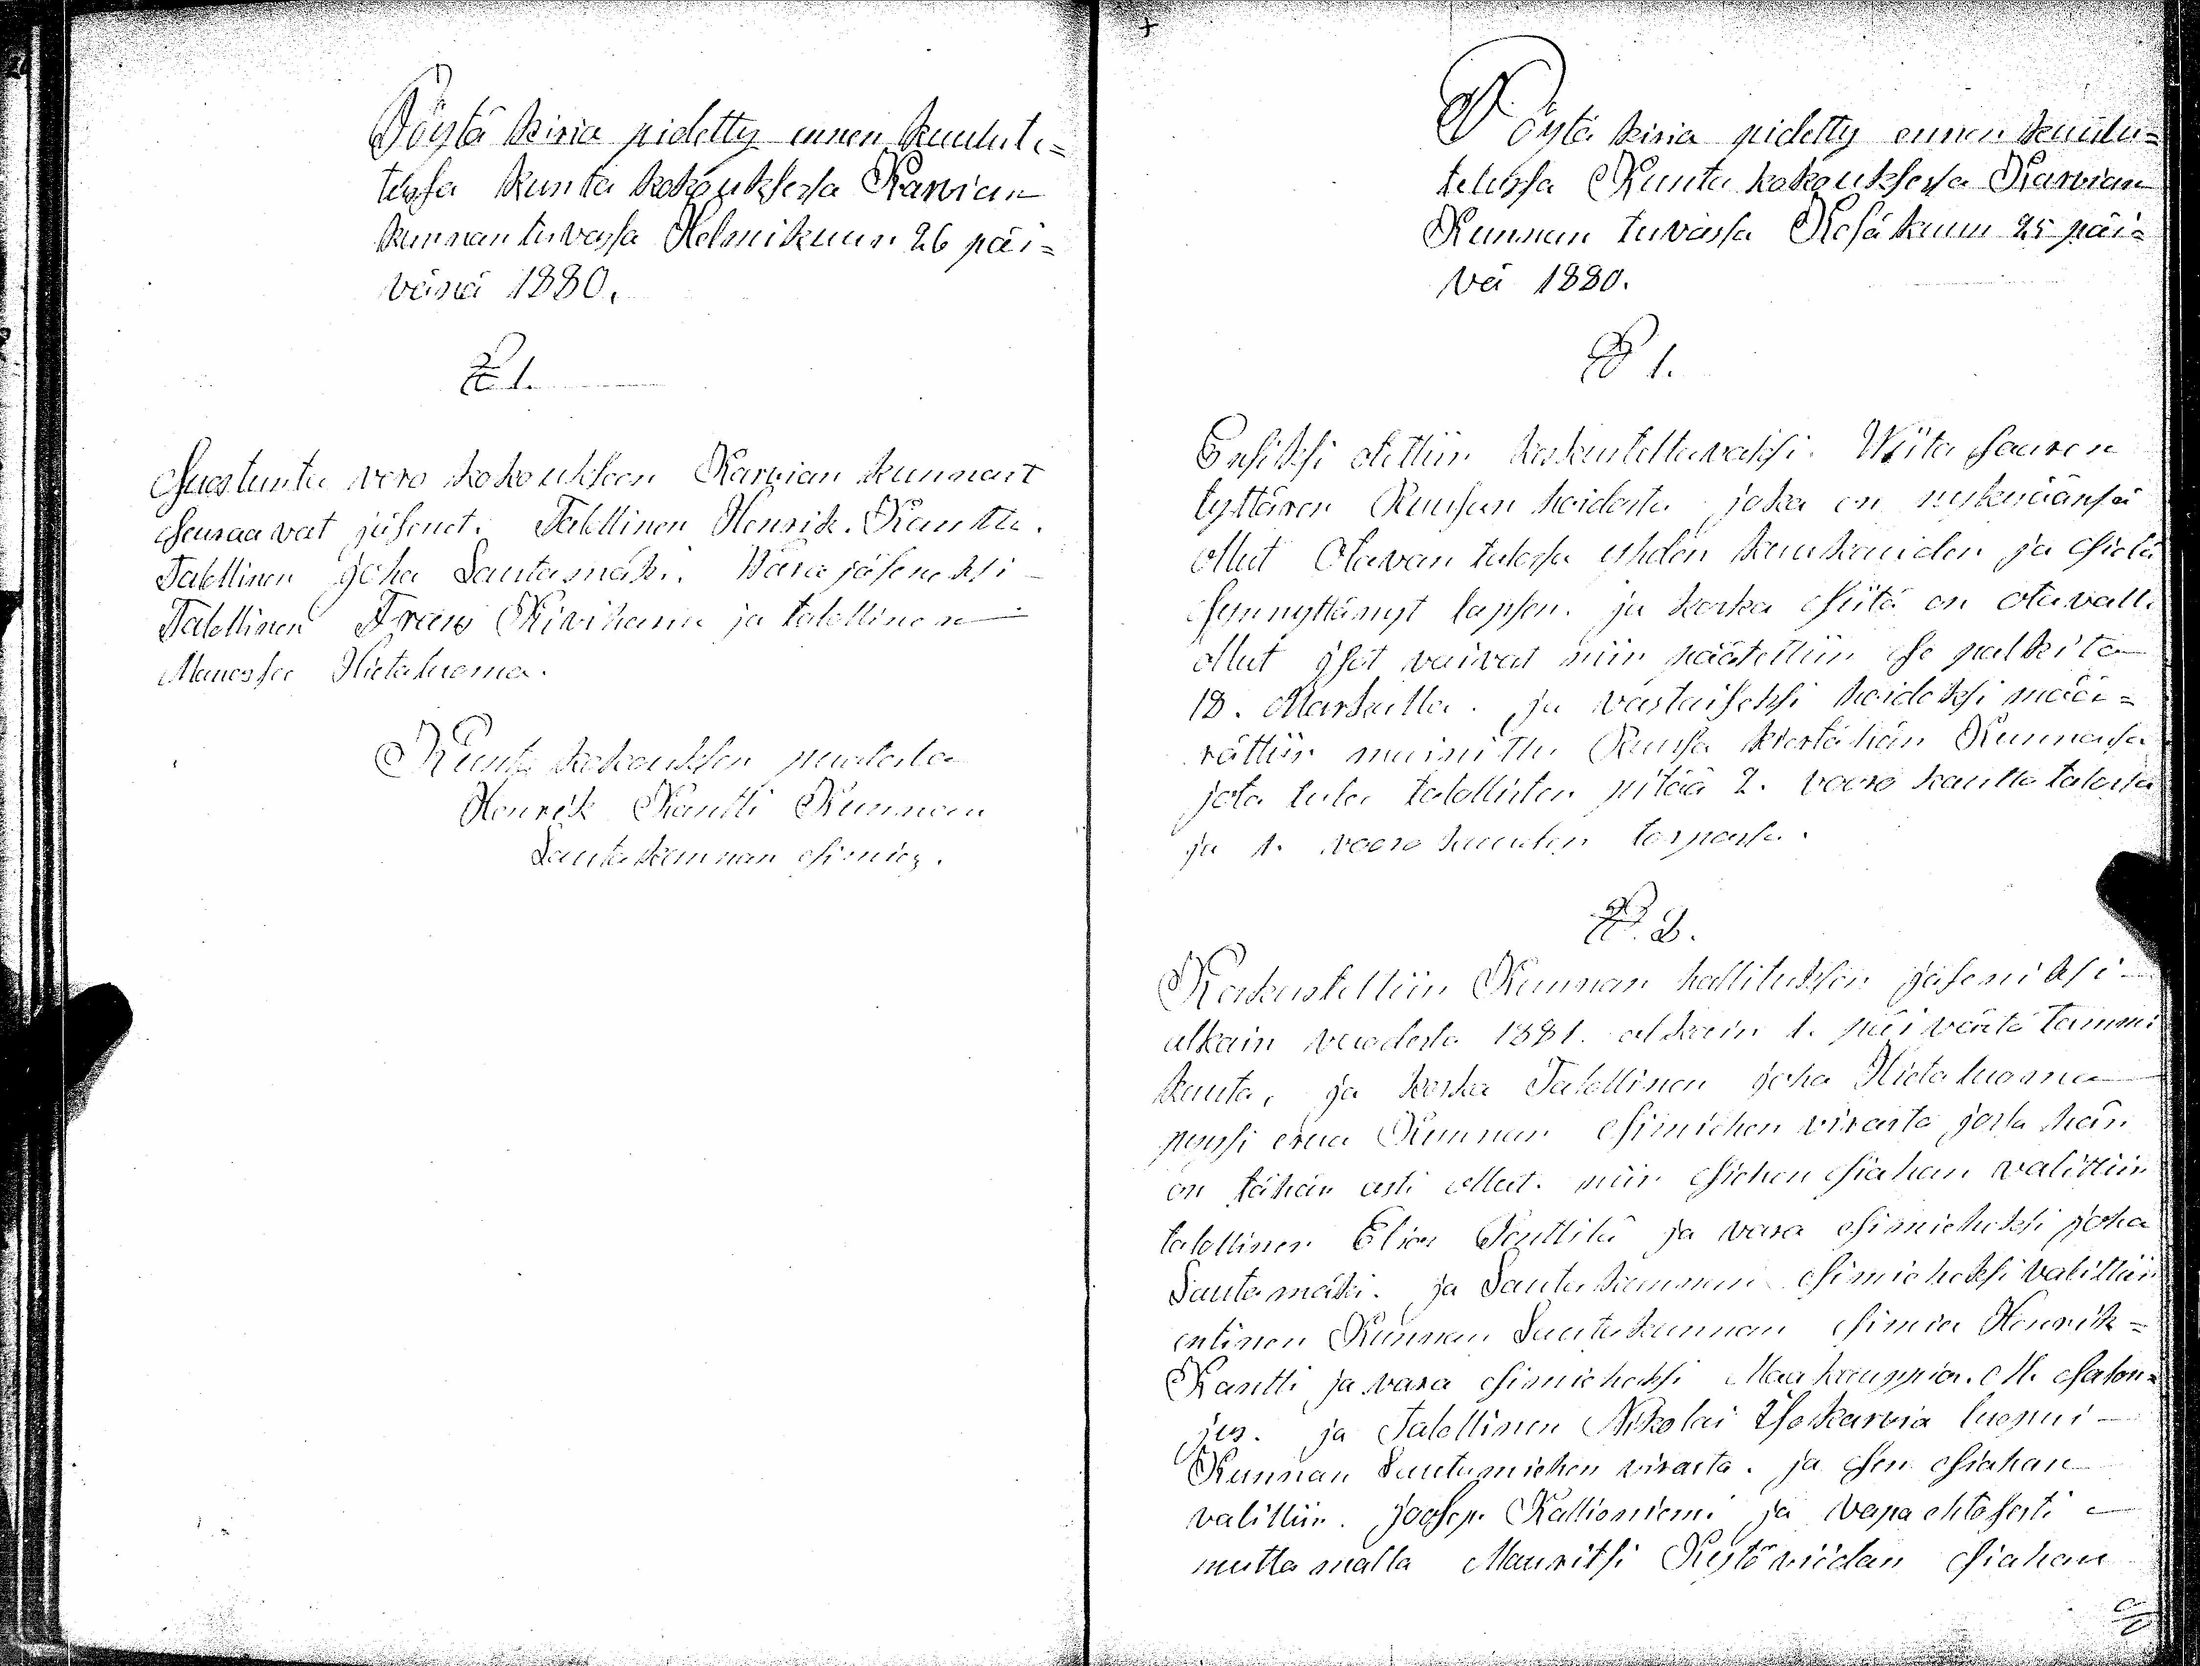 Pöytä kiria pidetty ennen kuulute=
tussa kunta kokouksessa Karvian
kunnan tuvassa Helmikuun 26 päi=
vänä 1880.
§ 1.
Suostunta vero kokoukseen Karvian kunnast
seuraavat jäsenet. Talollinen Henrik. Kantti.
Talollinen Joha Lautamäki. Vara jäseneksi
Talollinen Frans Kivihania ja talollinen
Manasse Hietaluoma.
Kunta kokouksen puolesta
Henrik Kantti Kunnan
Lautakunnan esimies.
Pöytä kiria pidetty ennen kuulu=
tetussa Kunta kokouksessa Karvian
Kunnan tuvassa Kesäkuun 25 päi=
vä 1880.
§ 1.
Ensiksi otettiin keskusteltavaksi. Wiita Sauren
tyttären Ruusun hoidosta joka on nykyäänsä
ollut Olavan talossa yhden kuukauden ja sielä
synnyttänyt lapsen. ja koska siitä on otavalla
ollut isot vaivat niin päätettiin se palkita
18. Markalla. ja vastaiseksi hoidoksi mää=
rättiin mainittu Ruusa kiertähän Kunnassa
jota tulee talollisten pitää 2. vooro kautta talossa
ja 1. vooro kauden torpassa.
§. 2.
Keskusteltiin Kunnan hallituksen jäseniksi
alkain vuodesta 1881. alkain 1. päivästä Tammi
kuuta, ja koska Talollinen Joha Hietaluoma
pyysi eroa Kunnan esimiehen virasta josta hän
on tähän asti ollut. niin siehen siahan valittiin
talollinen Elias Penttilä ja vara esimieheksi Joha
Lautamäki. ja Lautakunnan esimieheksi valittiin
entinen Kunnan Lautakunnan esimies Henrik=
Kantti ja vara esimieheksi Maakauppias. M. Salon=
jus. ja Talollinen Nikolai Ysokarvia luopui
Kunnan Lautamiehen virasta. ja sen siahan
valittiin. Joosep. Kallioniemi ja vapaehtosesti
muttamalla Mauritsi Kytöviidan siahan